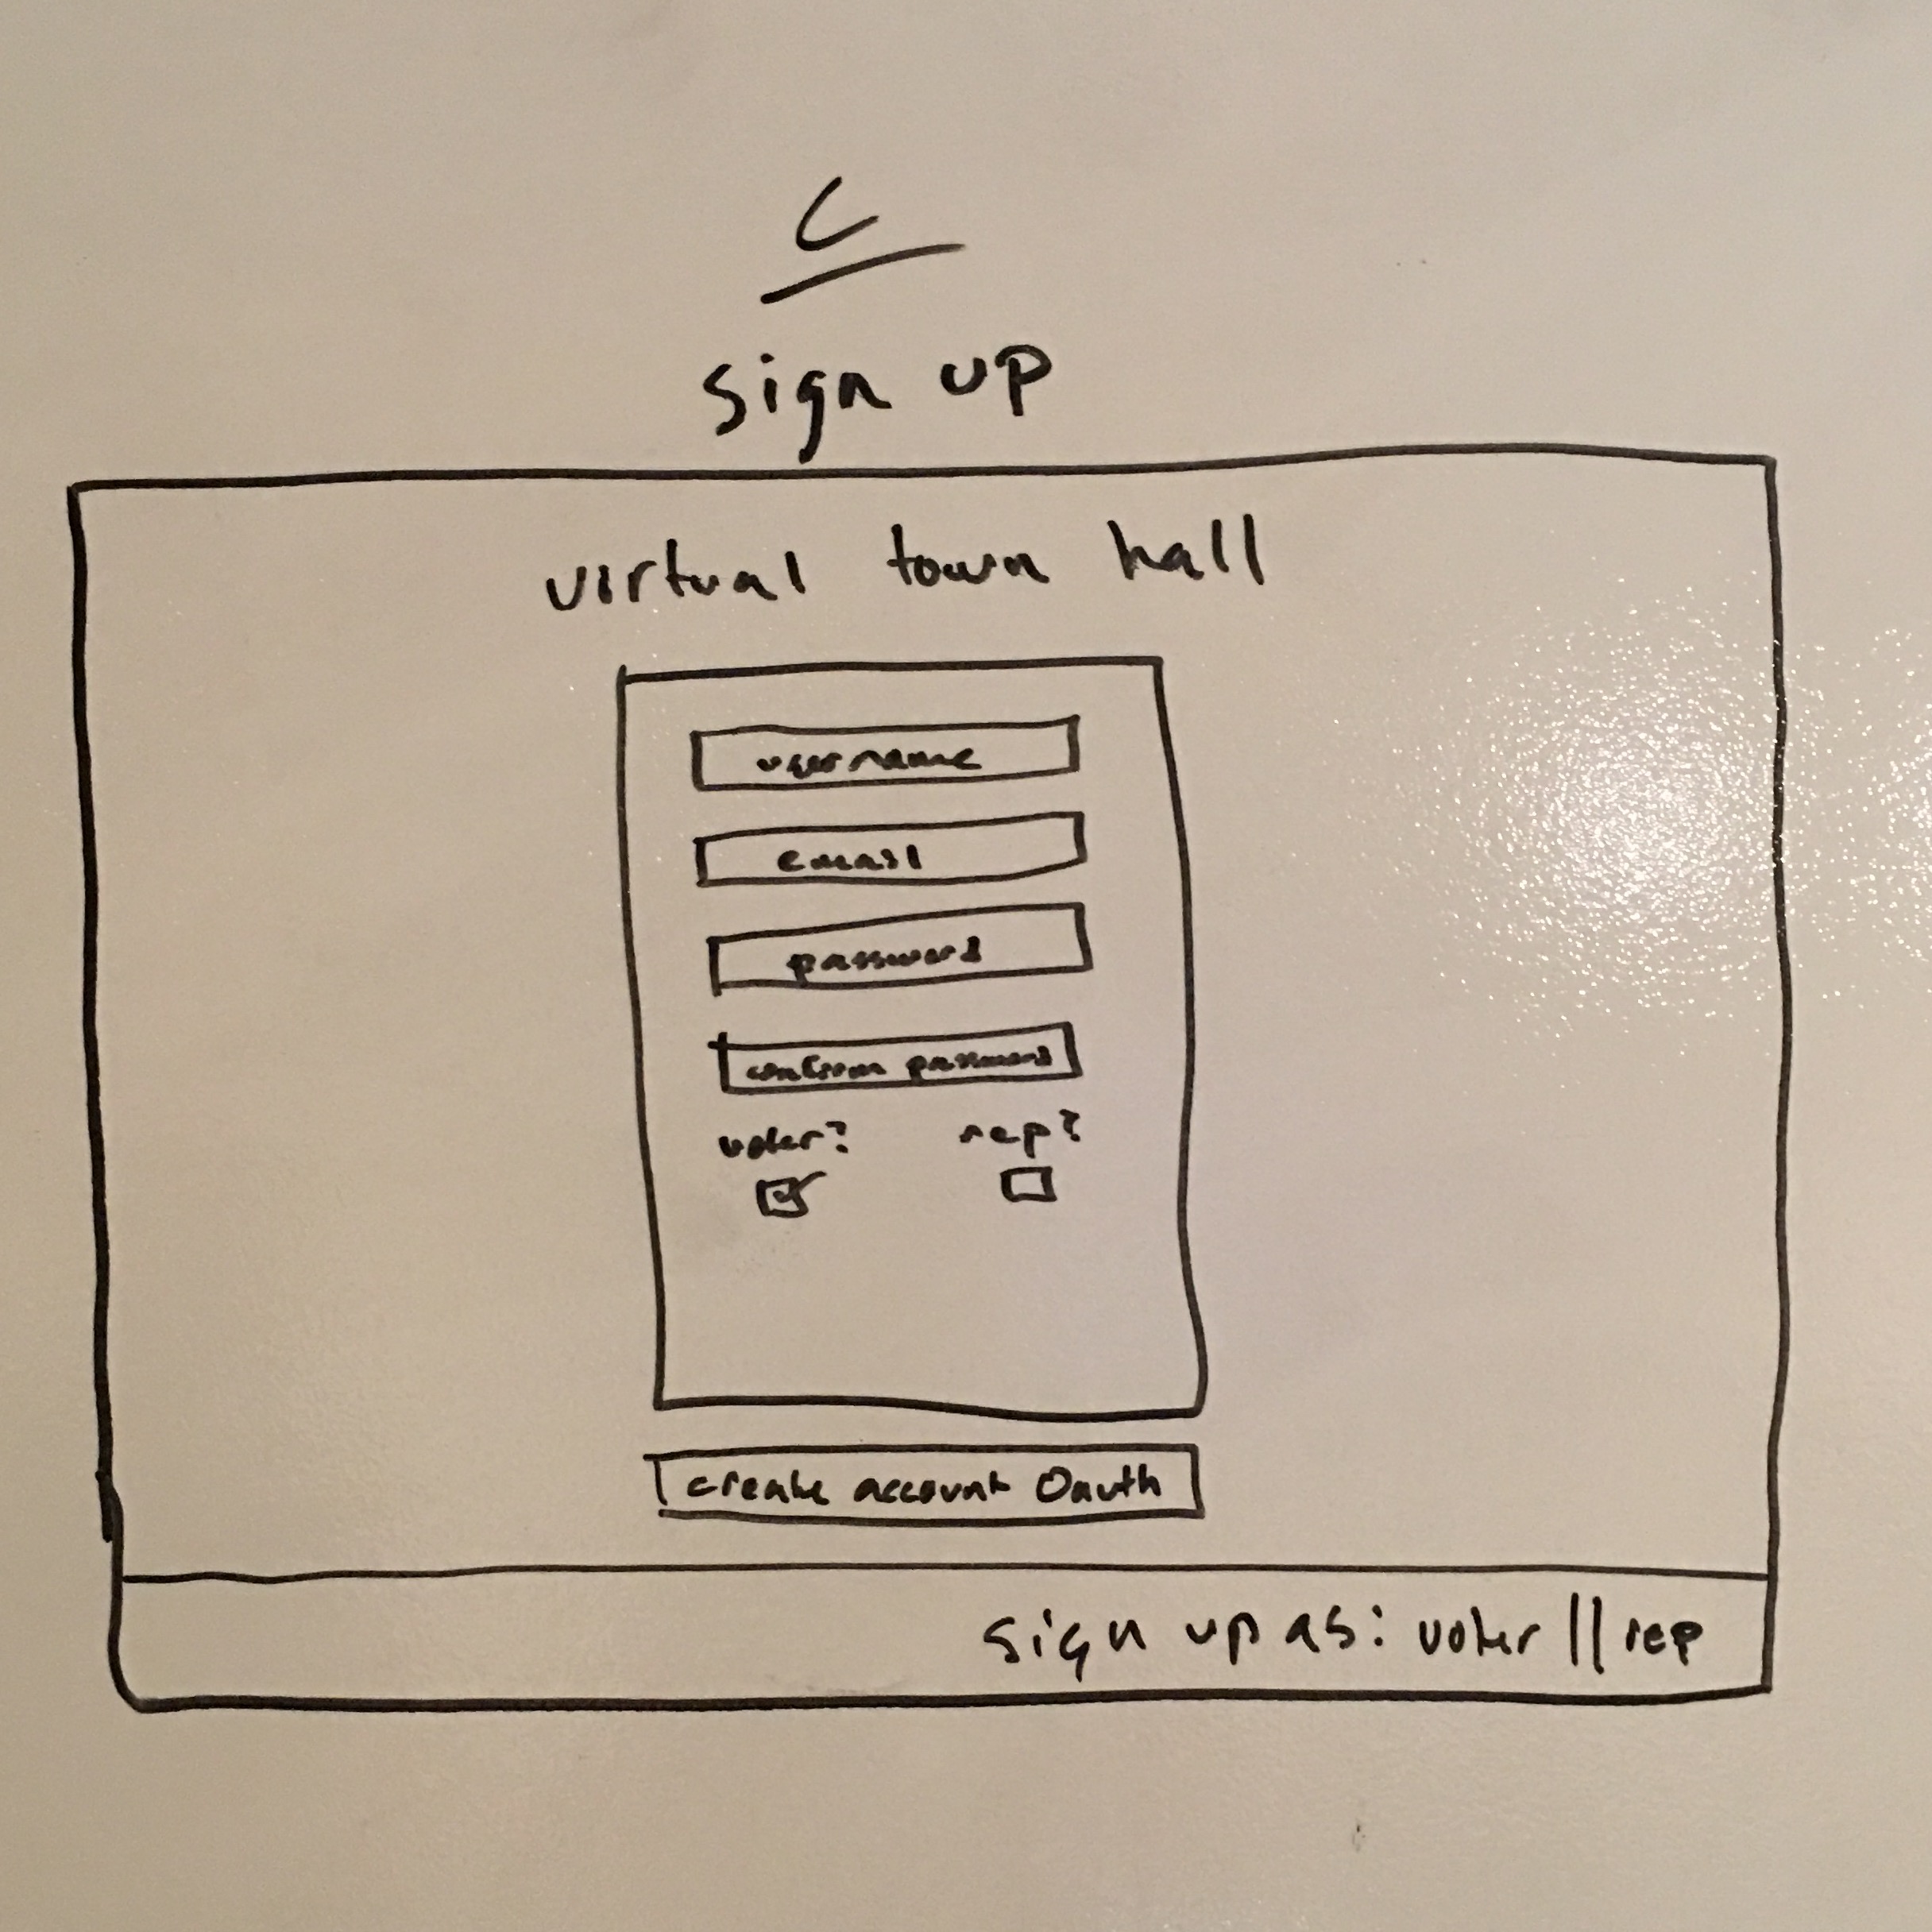 C
sign up
virtual town hall
username
email
password
confirm password
voter? rep?
create account Oauth
sign up as: voter || rep